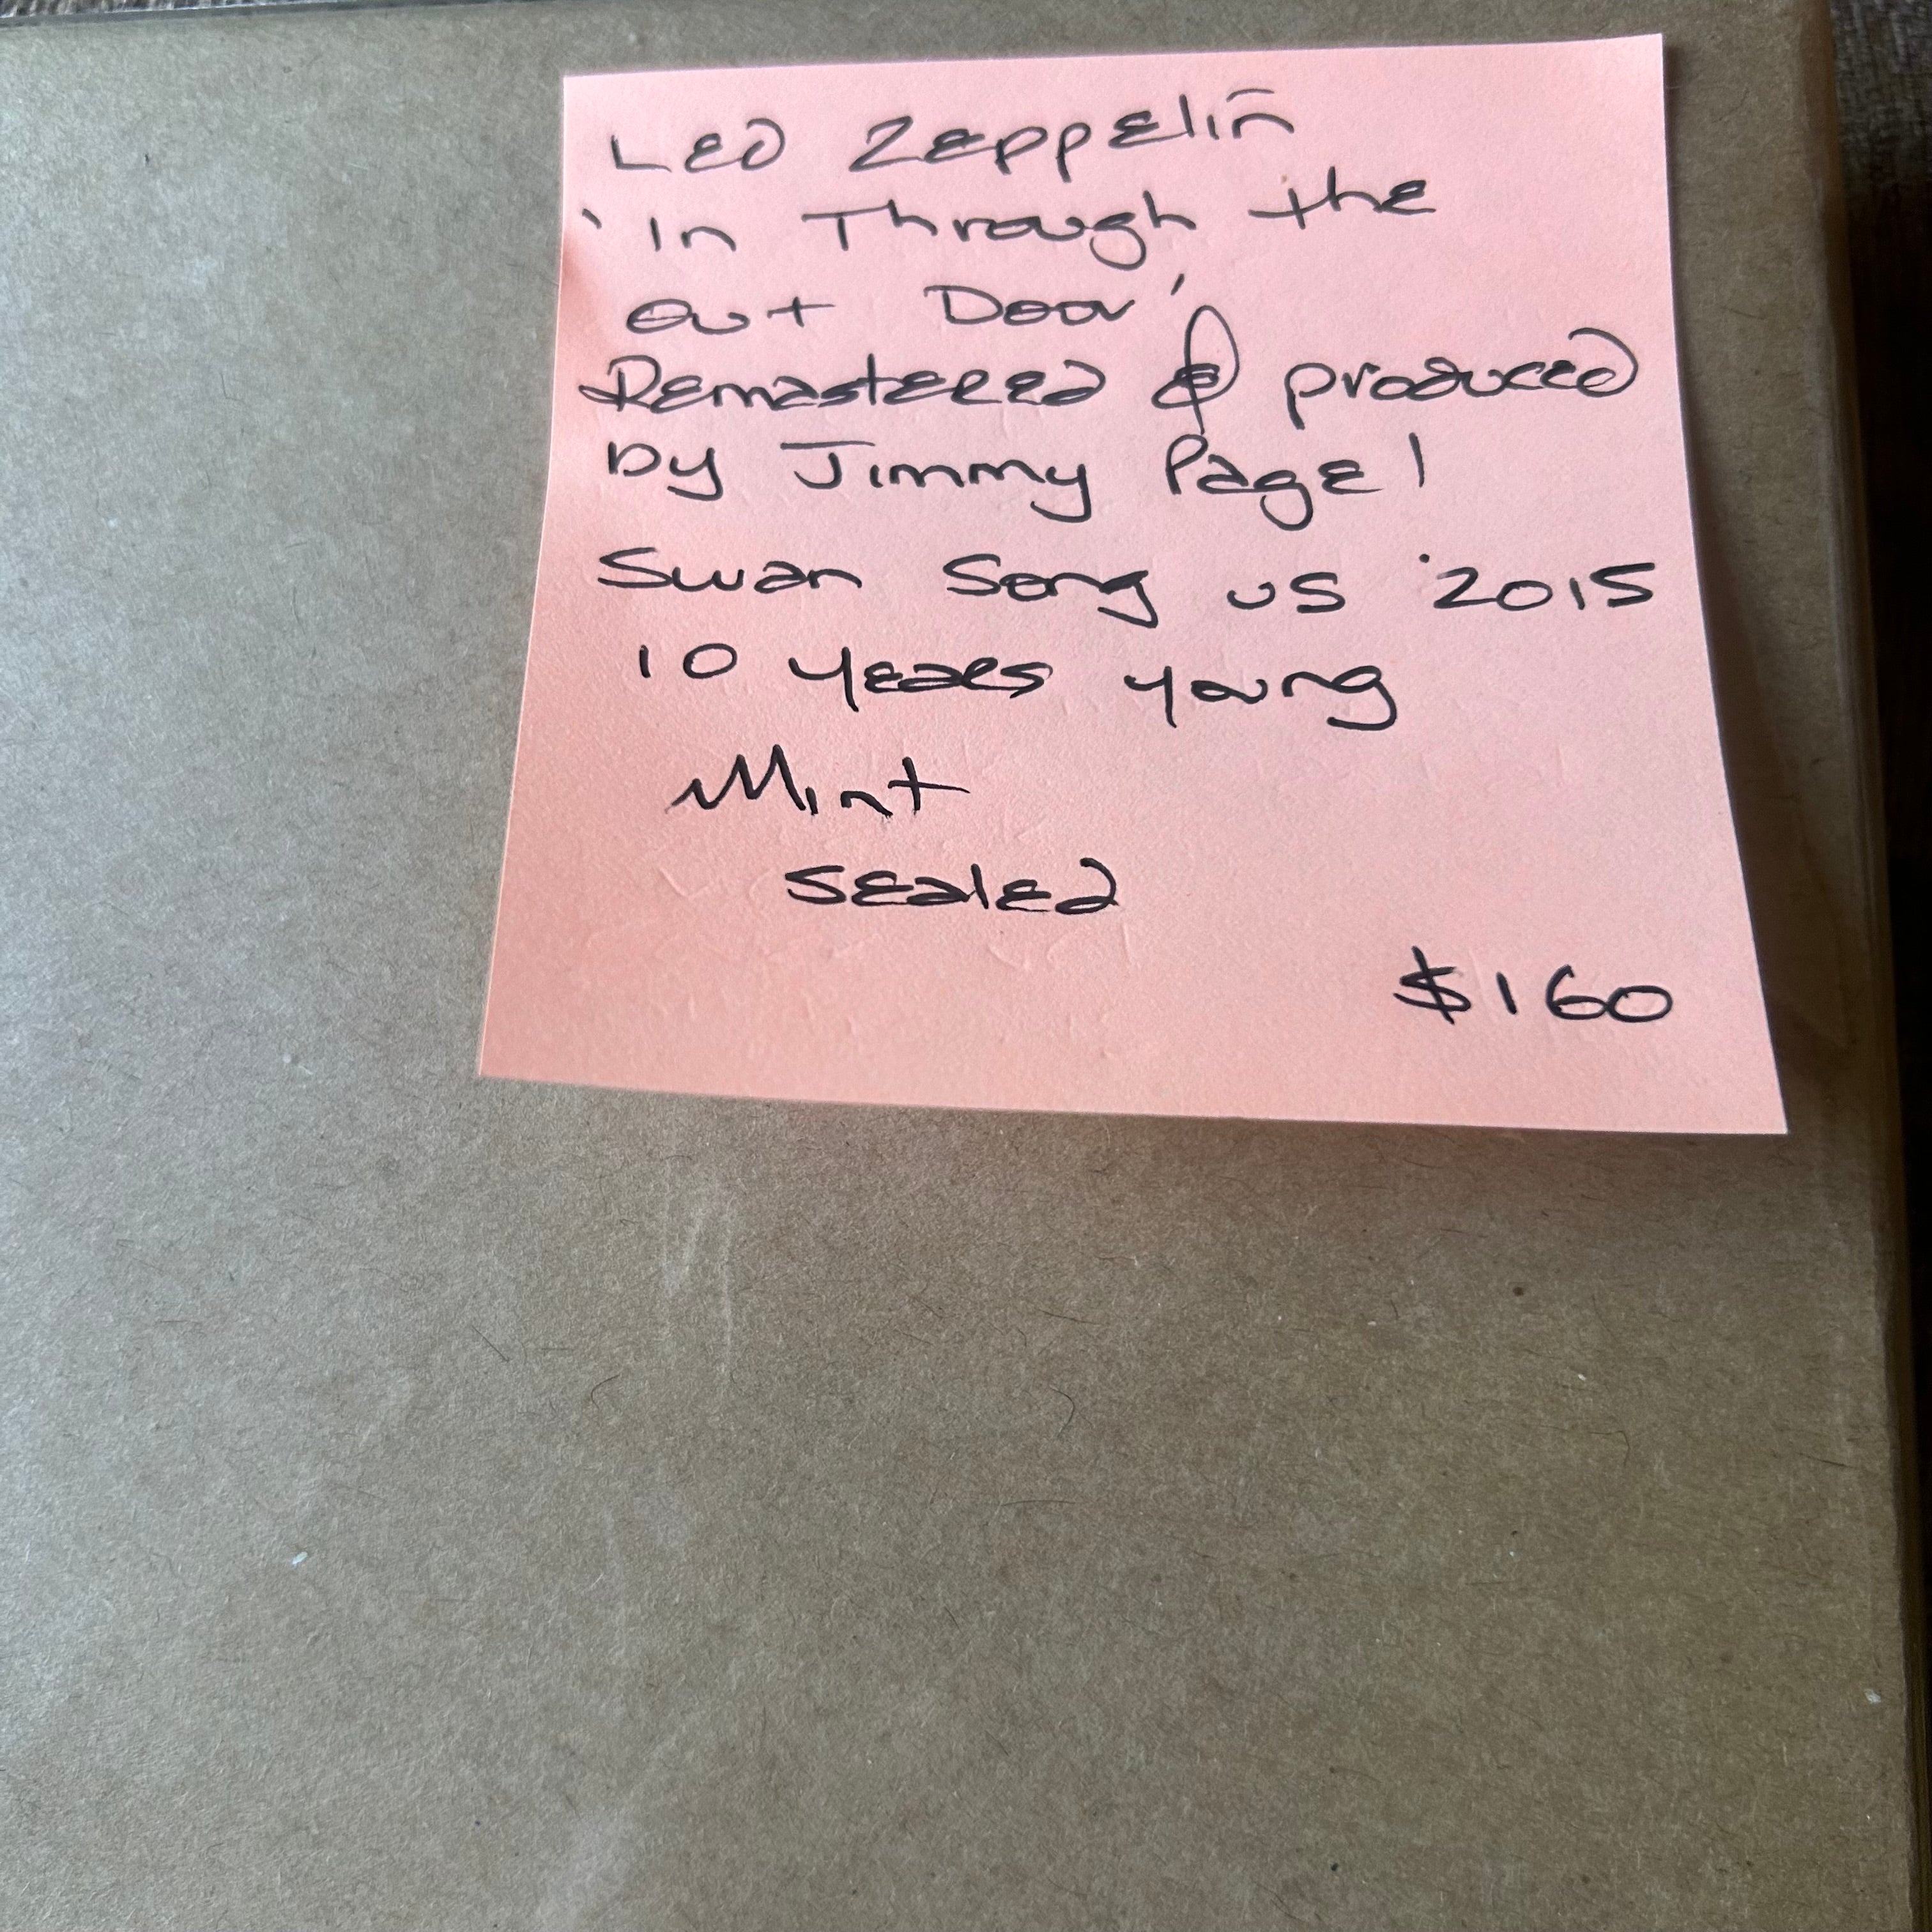 Led Zeppelin
'In Through the
Out Door'
Remastered & produced
by Jimmy Page!
Swan Song US 2015
10 years young
Mint
sealed
$160